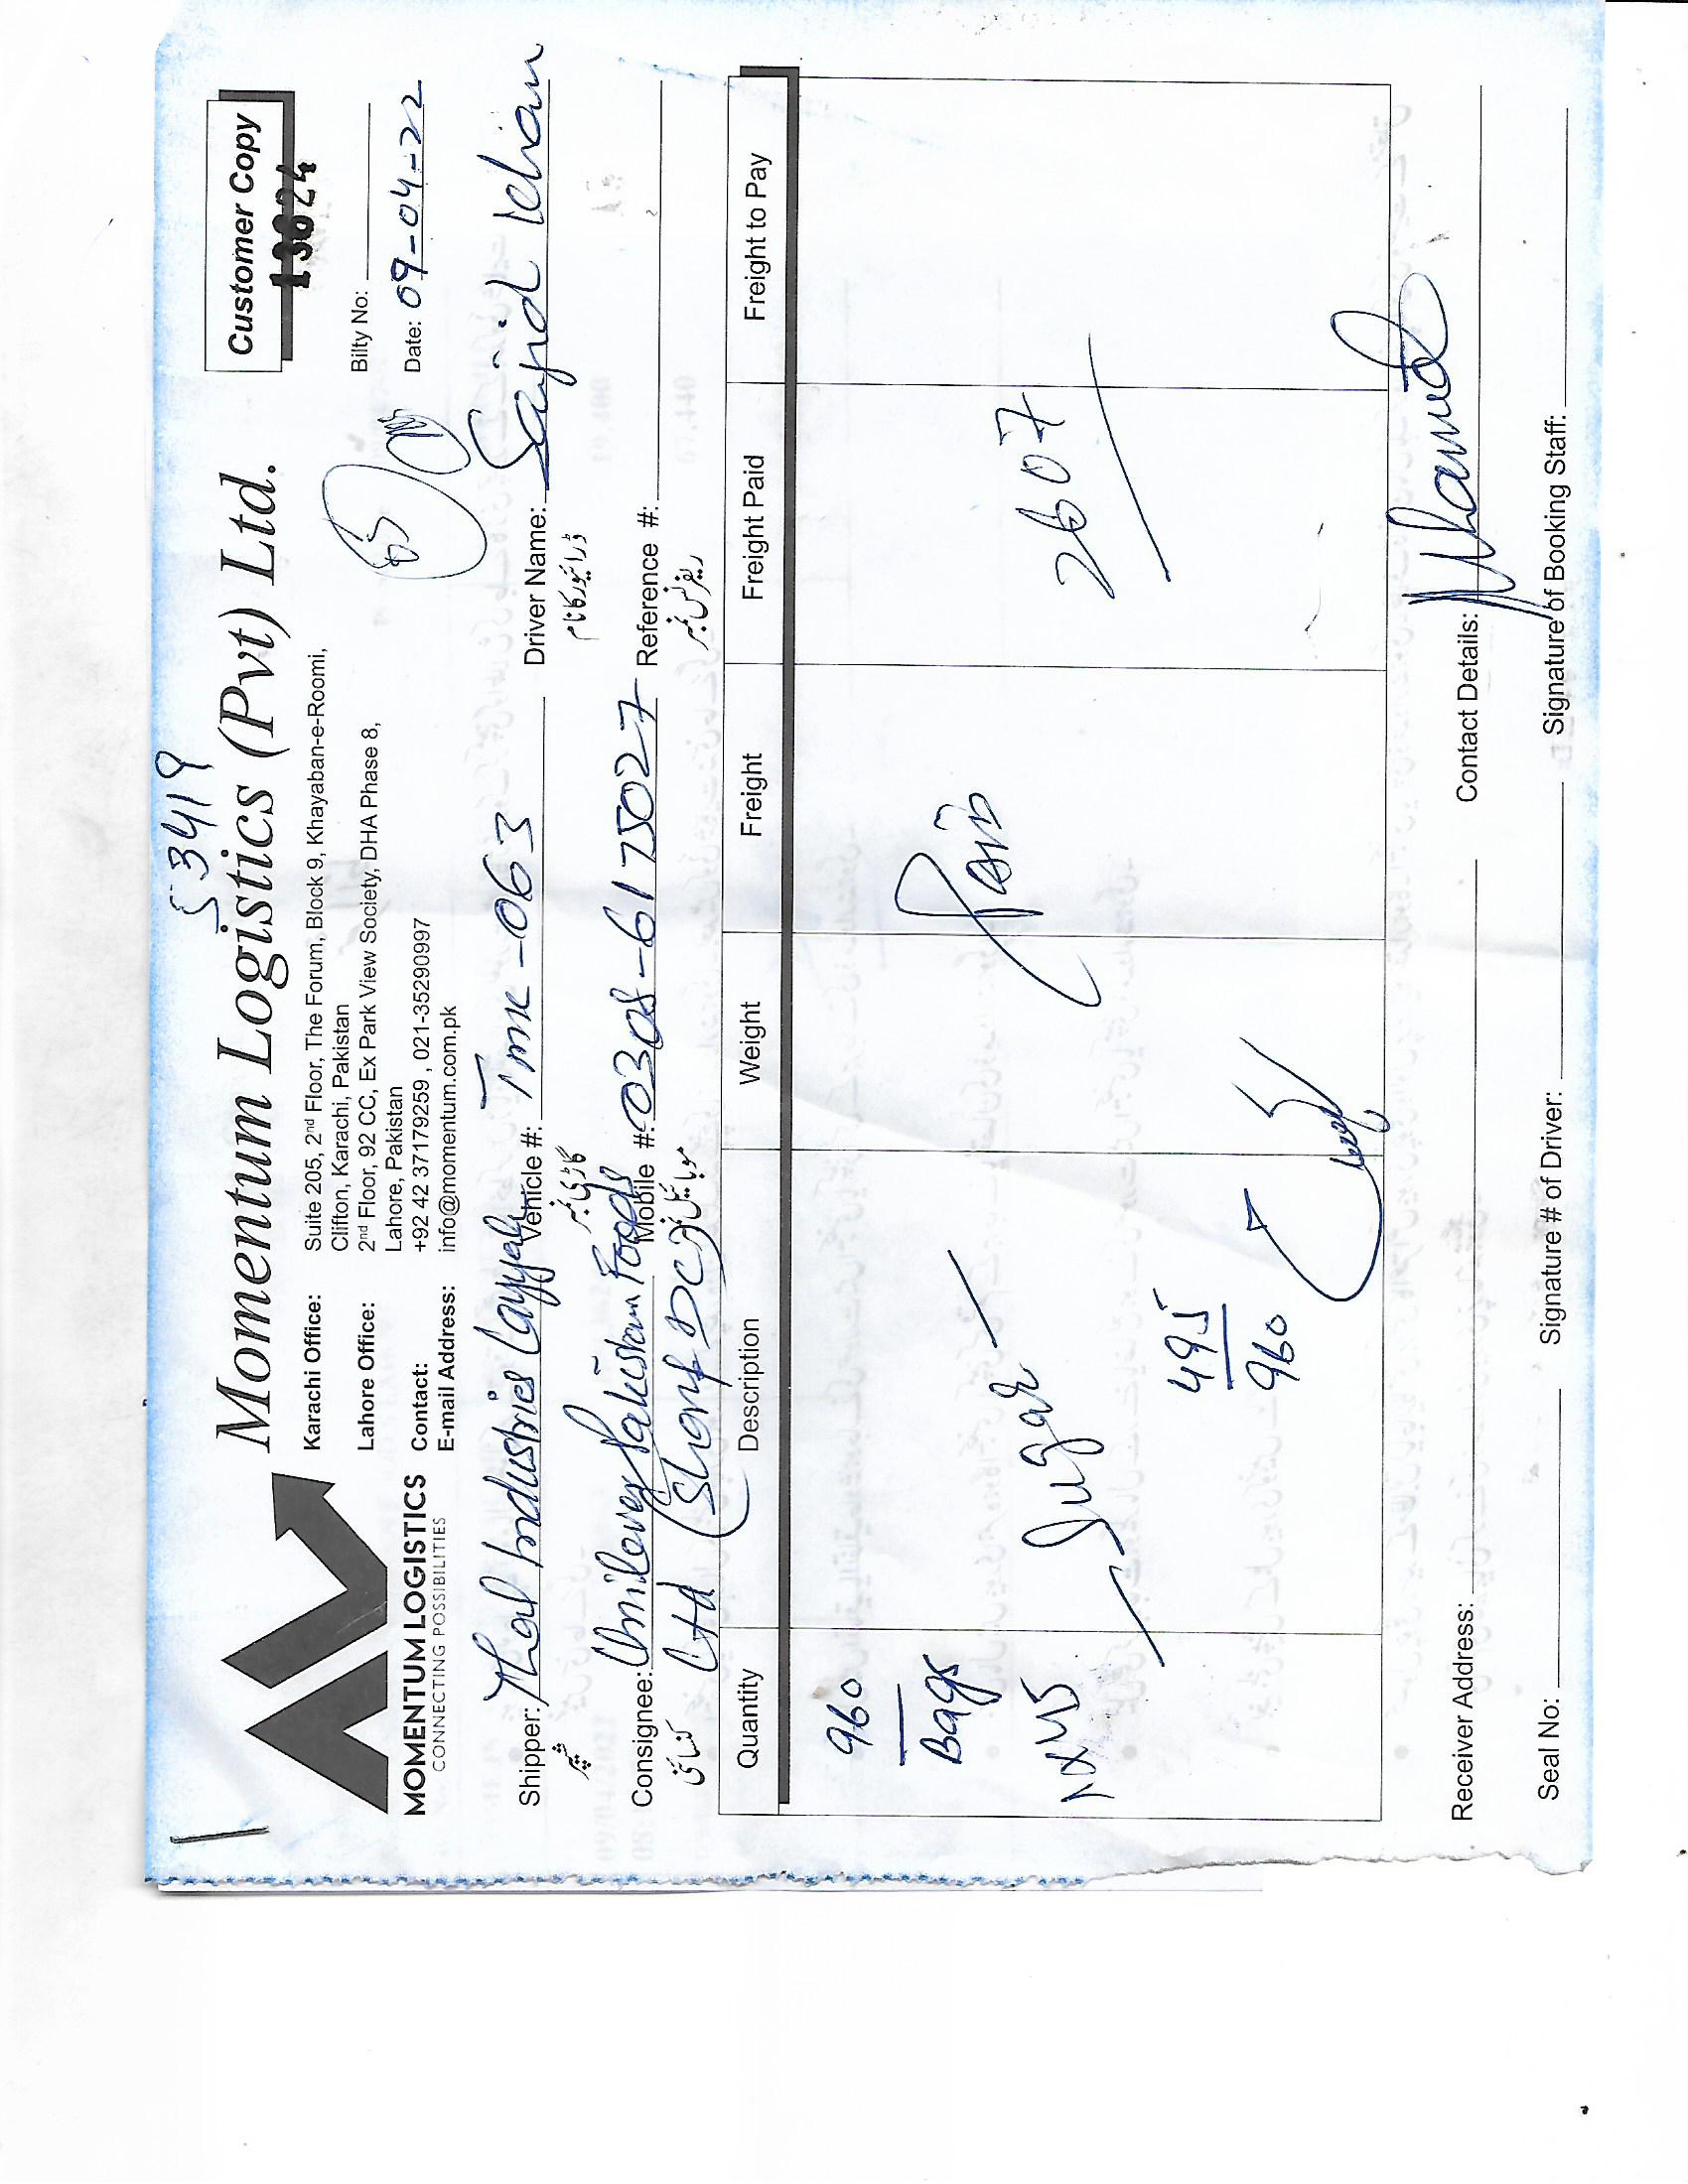 53419
Momentum Logistics (Pvt) Ltd.
Customer Copy
13624
MOMENTUM LOGISTICS
CONNECTING POSSIBILITIES
Karachi Office: Suite 205, 2nd Floor, The Forum, Block 9, Khayaban-e-Roomi,
Clifton, Karachi, Pakistan
Lahore Office: 2nd Floor, 92 CC, Ex Park View Society, DHA Phase 8,
Lahore, Pakistan
Contact: +92 42 37179259 , 021-35290997
E-mail Address: info@momentum.com.pk
Bilty No:
Date: 09-04-22
Shipper: Thal Industries Layyah Vehicle #: TMK-063 Driver Name: Sajid Khan
شیپر گاڑی نمبر ڈرائیور کا نام
Consignee: Unilever Pakistan Foods Mobile #: 0308-6175027 Reference #:
Ltd (Sharf DC)
کنسائنی موبائیل نمبر ریفرنس نمبر
Quantity Description Weight Freight Freight Paid Freight to Pay
960
Bags
1x45
Sugar
Paid
2607
495
960
Receiver Address: Contact Details:
Seal No: Signature # of Driver: Signature of Booking Staff: